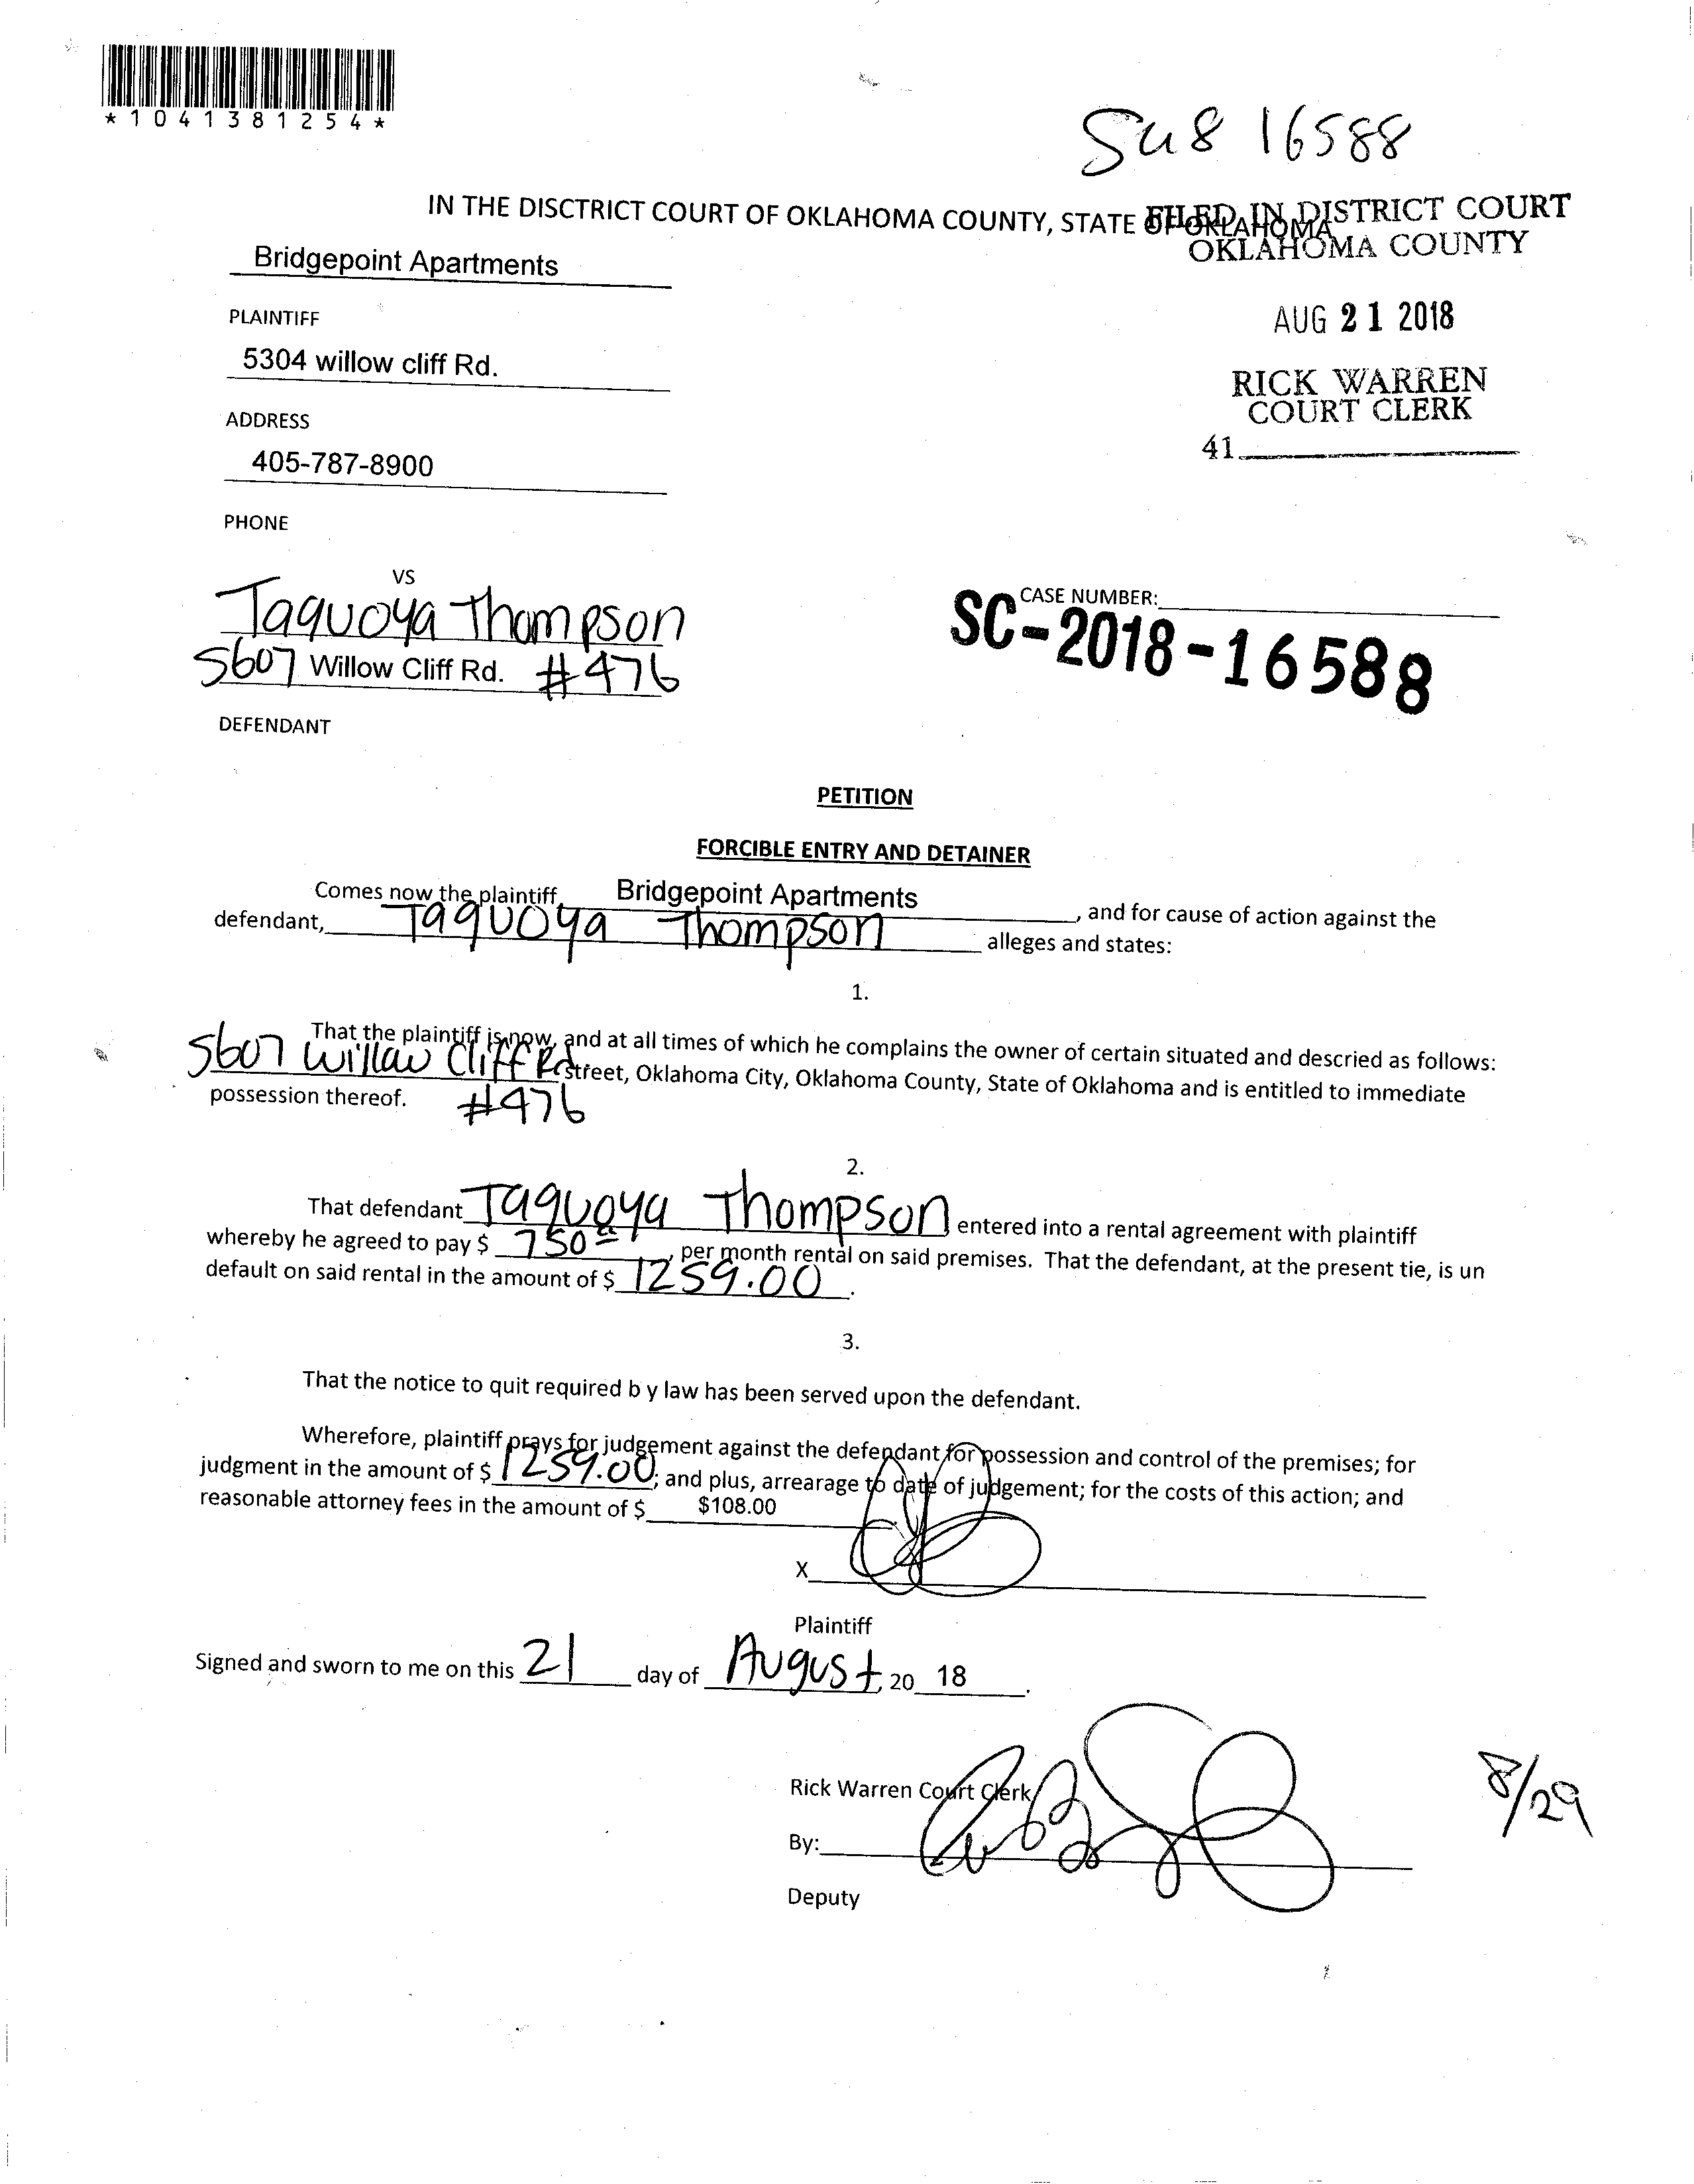 *1041381254*
SC18 16588
IN THE DISCTRICT COURT OF OKLAHOMA COUNTY, STATE OF OKLAHOMA
FILED IN DISTRICT COURT
OKLAHOMA COUNTY
Bridgepoint Apartments
PLAINTIFF
AUG 21 2018
5304 willow cliff Rd.
RICK WARREN
COURT CLERK
ADDRESS
41
405-787-8900
PHONE
VS
CASE NUMBER:
Taquoya Thompson
SC-2018-16588
5607 Willow Cliff Rd. #476
DEFENDANT
PETITION
FORCIBLE ENTRY AND DETAINER
Comes now the plaintiff, Bridgepoint Apartments, and for cause of action against the
defendant, Taquoya Thompson alleges and states:
1.
That the plaintiff is now, and at all times of which he complains the owner of certain situated and descried as follows:
5607 Willow Cliff Rd Street, Oklahoma City, Oklahoma County, State of Oklahoma and is entitled to immediate
possession thereof. #476
2.
That defendant Taquoya Thompson entered into a rental agreement with plaintiff
whereby he agreed to pay $ 750.00, per month rental on said premises. That the defendant, at the present tie, is un
default on said rental in the amount of $ 1259.00.
3.
That the notice to quit required b y law has been served upon the defendant.
Wherefore, plaintiff prays for judgement against the defendant for possession and control of the premises; for
judgment in the amount of $ 1259.00; and plus, arrearage to date of judgement; for the costs of this action; and
reasonable attorney fees in the amount of $ $108.00
X
Plaintiff
Signed and sworn to me on this 21 day of August, 20 18.
Rick Warren Court Clerk
8/29
By:
Deputy